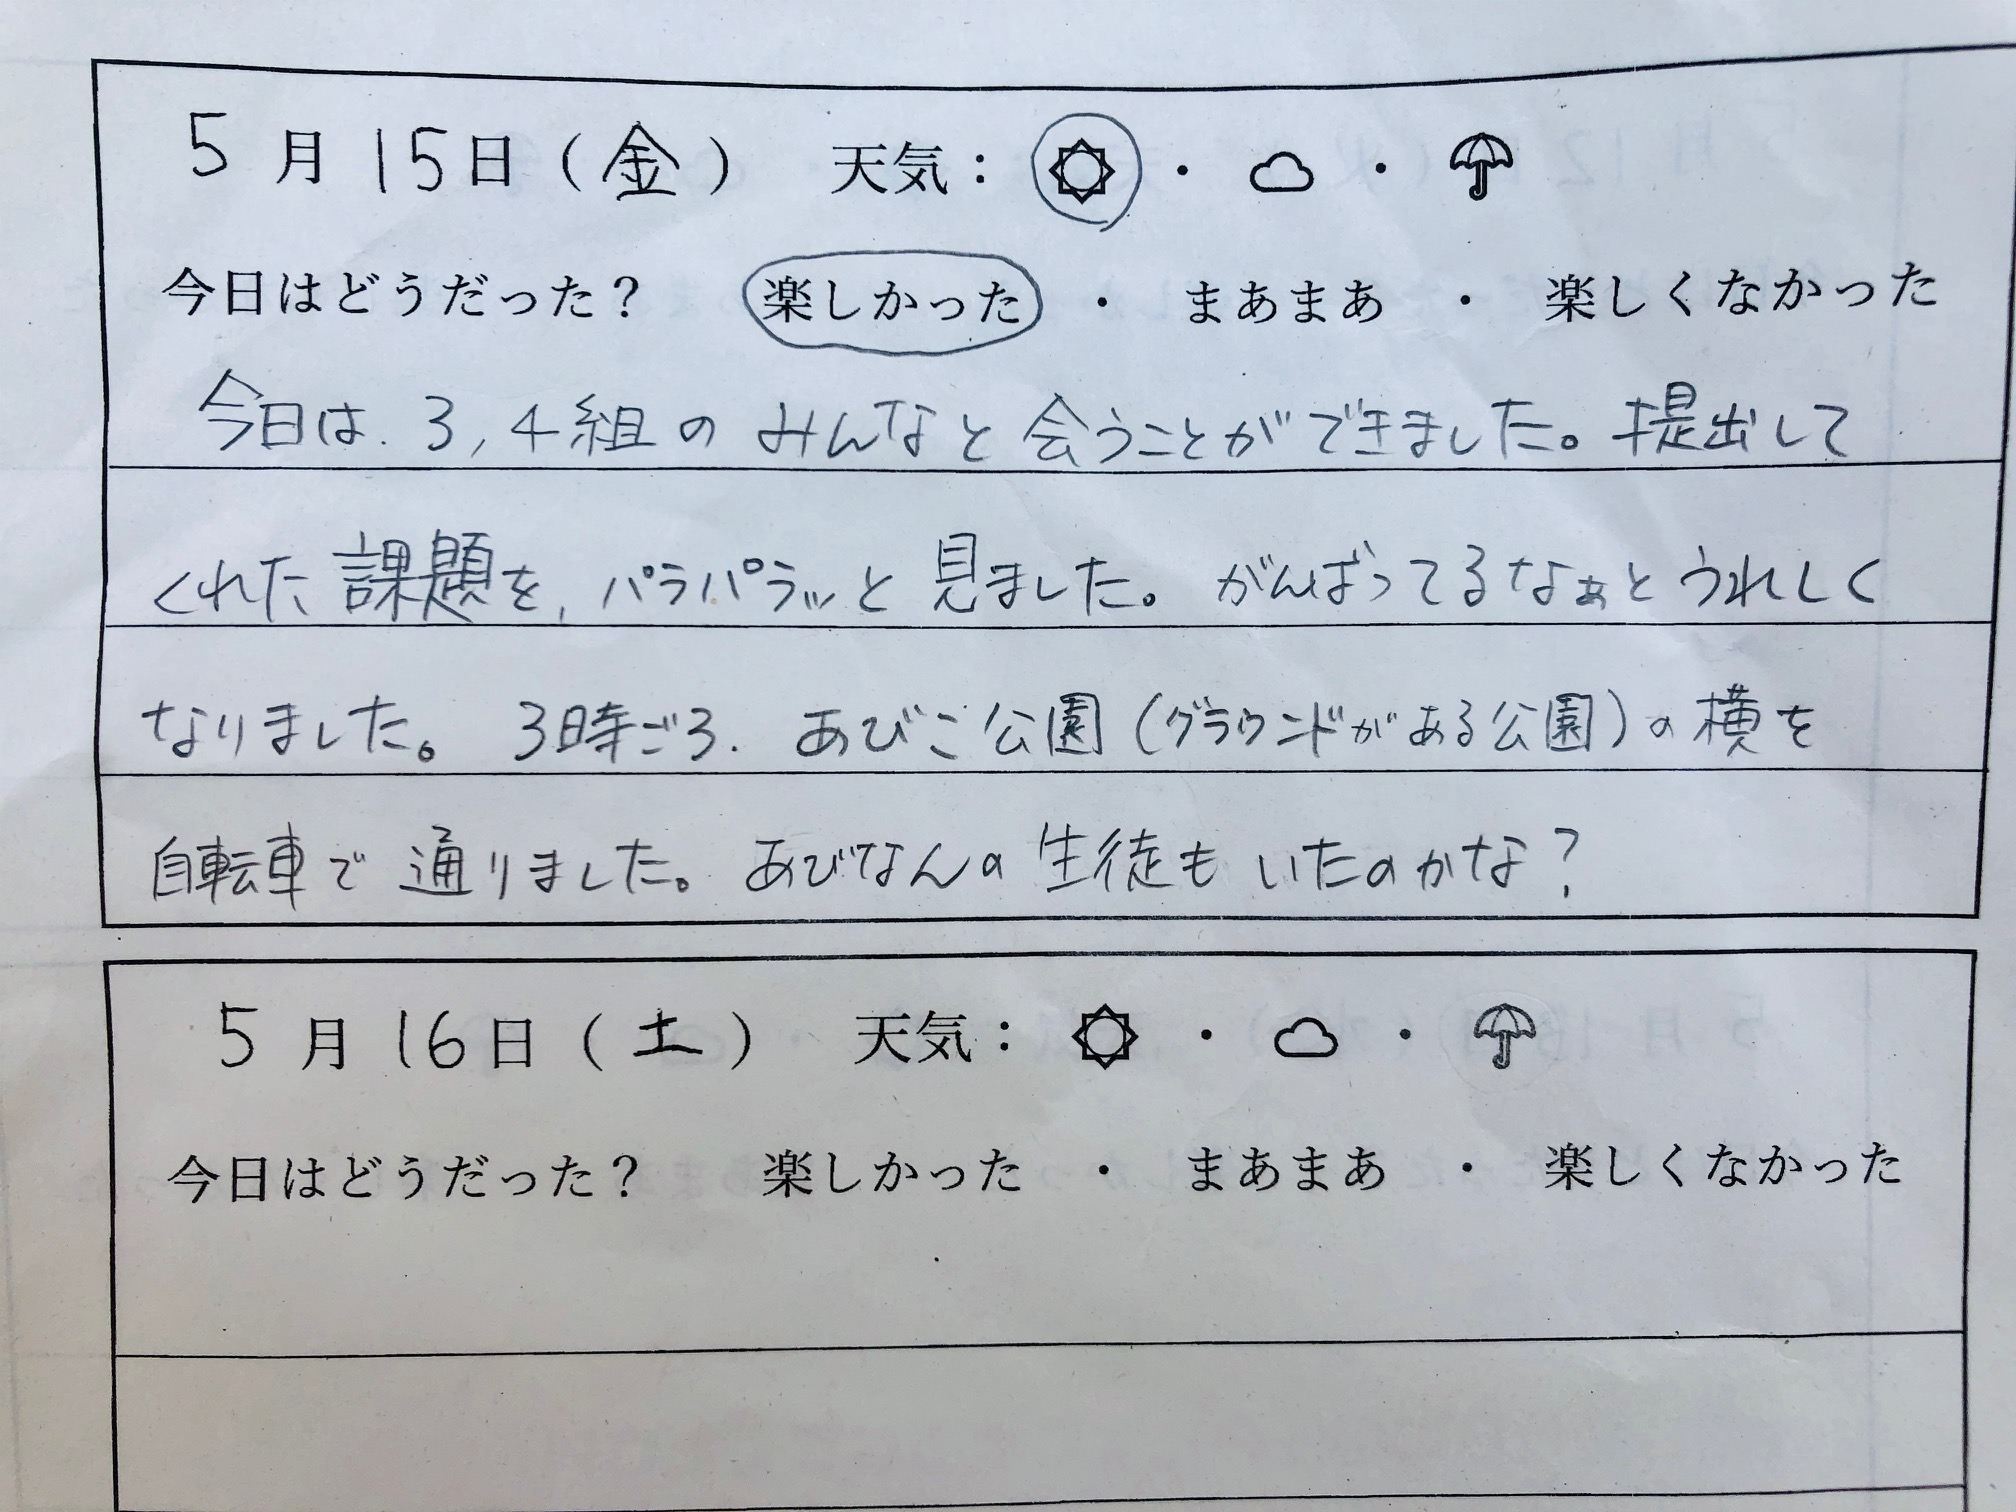 5月15日(金) 天気：☼・☁・☂
今日はどうだった？ 楽しかった ・ まあまあ ・ 楽しくなかった
今日は、3,4組のみんなと会うことができました。提出して
くれた課題を、パラパラッと見ました。がんばってるなぁとうれしく
なりました。3時ごろ、あびこ公園(グラウンドがある公園)の横を
自転車で通りました。あびなんの生徒もいたのかな？
5月16日(土) 天気：☼・☁・☂
今日はどうだった？ 楽しかった ・ まあまあ ・ 楽しくなかった